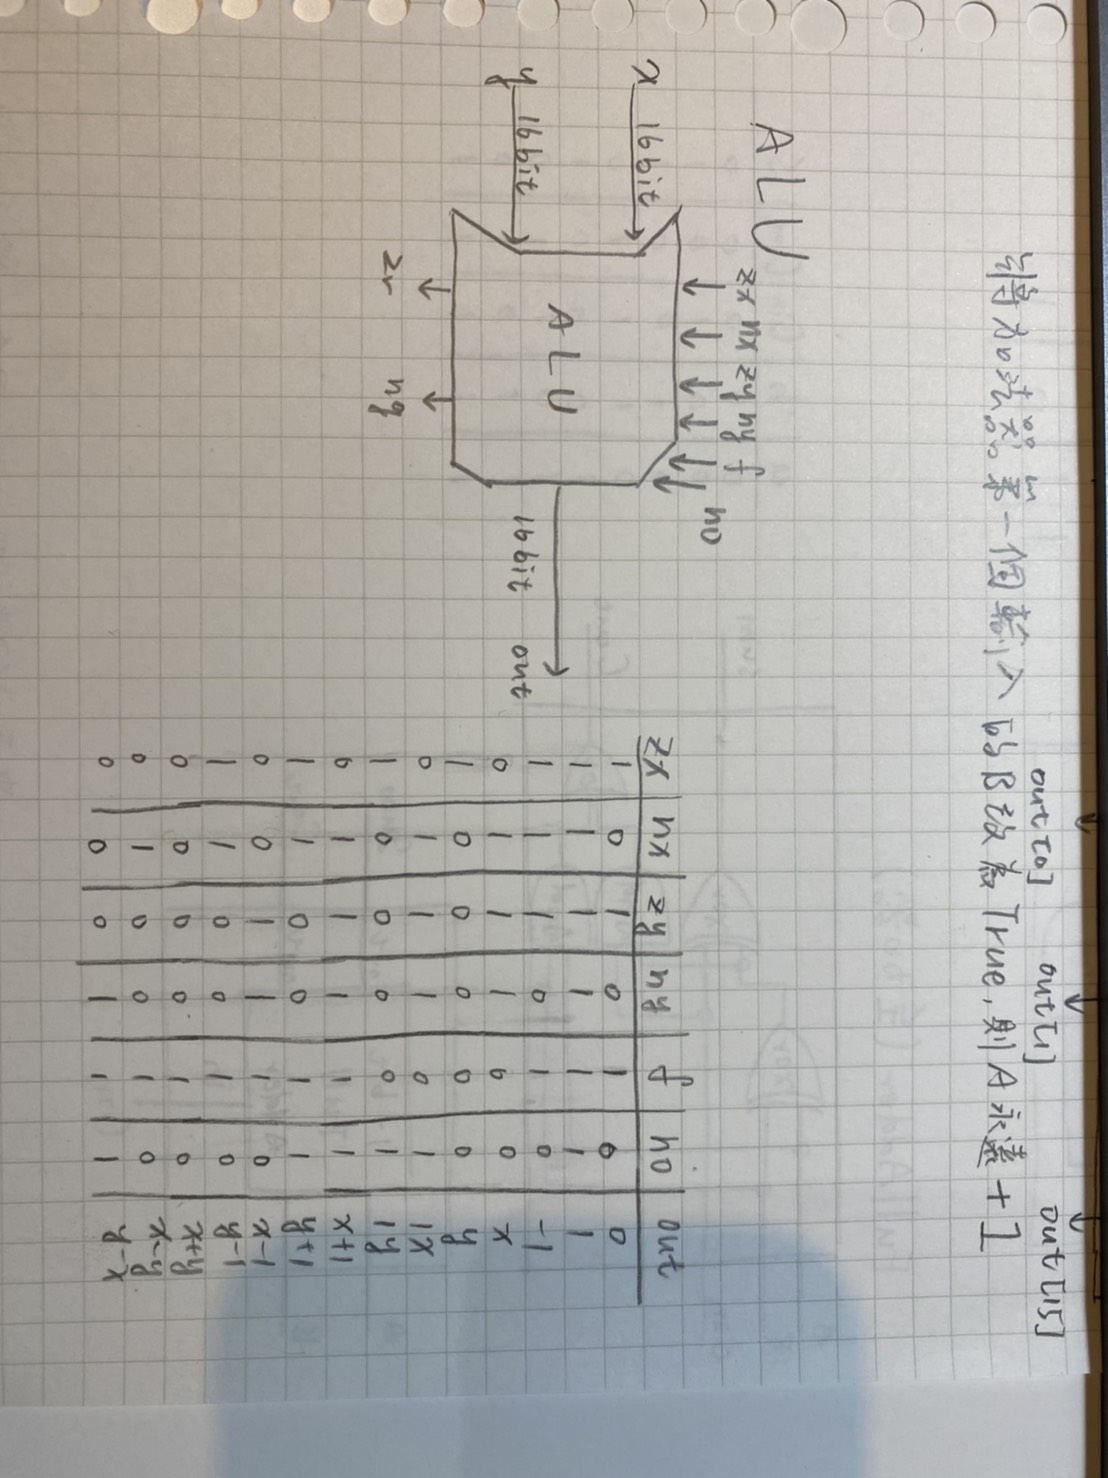 out[0] out[1] out[15]
in
將加法器 一個輸入的B改為True,則A永遠+1
ALU
zx nx zy ny f no
x 16bit
y 16bit
ALU
16bit out
zr ng
zx nx zy ny f no out
1 0 1 0 1 0 0
1 1 1 1 1 1 1
1 1 1 0 1 0 -1
0 1 1 1 0 0 x
1 0 0 0 0 0 y
0 1 1 1 0 1 1x
1 0 0 0 0 1 1y
0 1 1 1 1 1 x+1
1 1 0 0 1 1 y+1
0 0 1 1 1 0 x-1
1 1 0 0 1 0 y-1
0 0 0 0 1 0 x+y
0 1 0 0 1 0 x-y
0 0 0 1 1 1 y-x